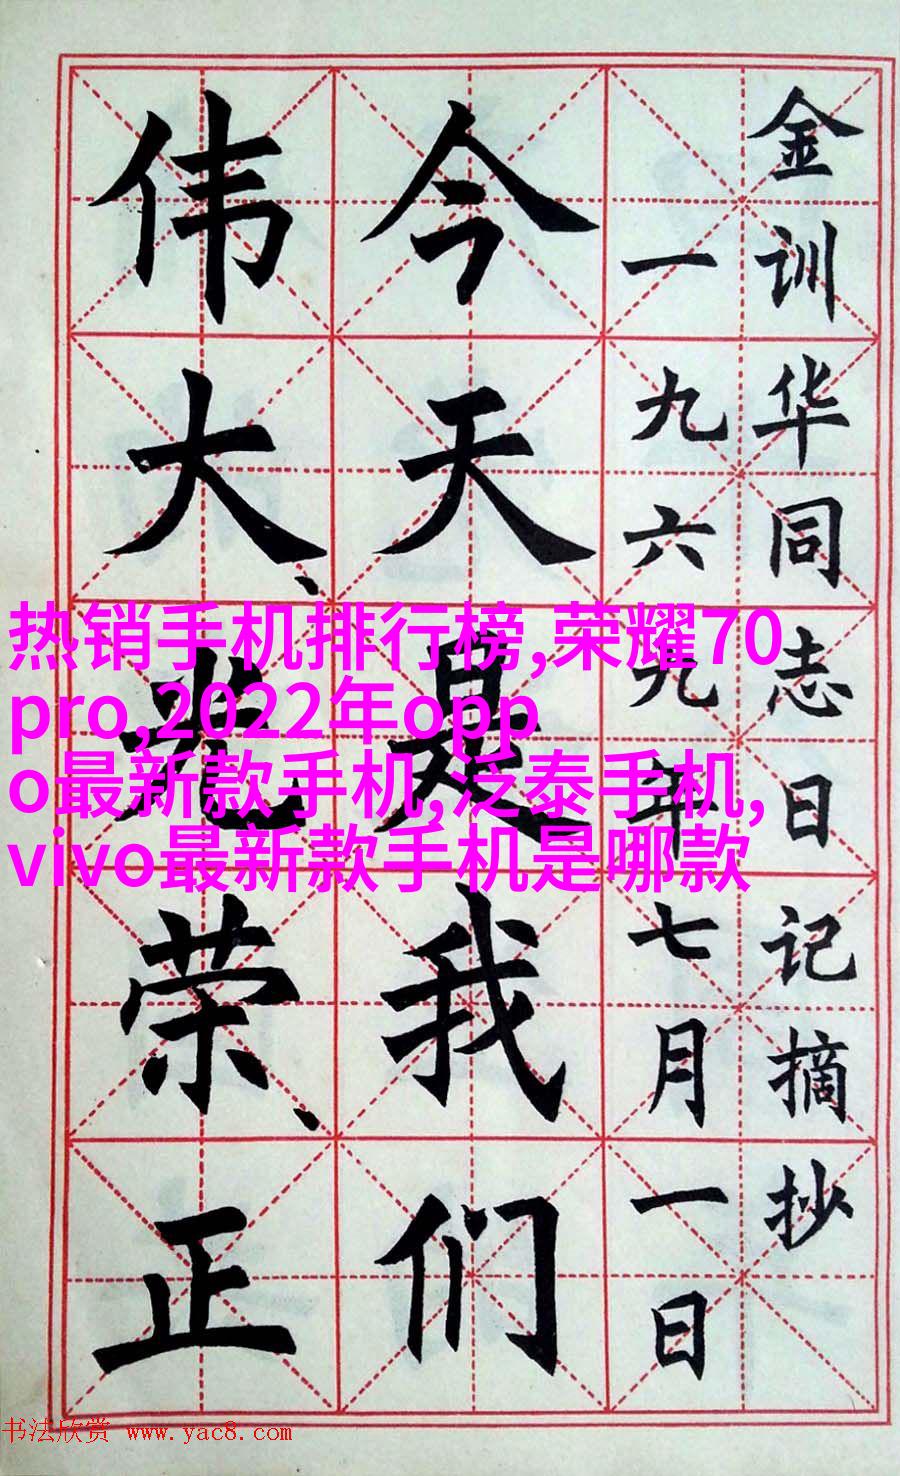 金训华同志日记摘抄
一九六九年七月一日
今天是我们
伟大、光荣、正
热销手机排行榜,荣耀70
pro,2022年opp
o最新款手机,泛泰手机,
vivo最新款手机是哪款
书法欣赏 www.yac8.com